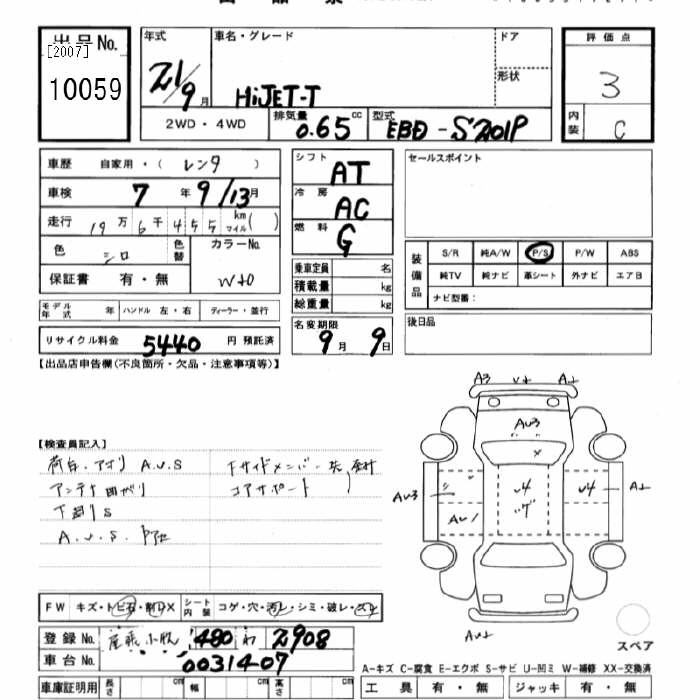 出品No.
[2007]
10059
年式
21/9月
車名・グレード
HiJET-T
ドア
形状
2WD・4WD
排気量 0.65 cc
型式 EBD-S201P
評価点
3
内装
C
車歴 自家用・( レンタ )
車検 7年 9/13月
走行 19万6千455 km マイル( )
色 シロ 色替
カラーNo. W40
保証書 有・無
モデル年式 年 ハンドル 左・右 ディーラー・並行
リサイクル料金 5440 円 預託済
シフト AT
冷房 AC
燃料 G
乗車定員 名
積載量 kg
総重量 kg
名変期限
9月 9日
セールスポイント
装備品
S/R 純A/W P/S P/W ABS
純TV 純ナビ 革シート 外ナビ エアB
ナビ型番:
後日品
【出品店申告欄(不良箇所・欠品・注意事項等)】
【検査員記入】
荷台、アオリ A.U.S
アンテナ曲がり
下廻りS
A.U.S.
下サイドメンバー
コアサポート
A3
A1
AU3
×
U4
AU3
AU1
U4
A1
FW キズ・トビ石・割レX
シート内装 コゲ・穴・汚レ・シミ・破レ・スレ
登録No. 480 わ 2908
車台No. 0031407
車庫証明用 長さ cm 幅 cm 高さ cm
スペア
A-キズ C-腐食 E-エクボ S-サビ U-凹ミ W-補修 XX-交換済
工具 有・無 ジャッキ 有・無